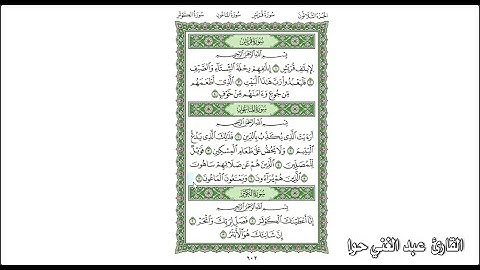 الجزء الثلاثون سورة قريش سورة الماعون سورة الكوثر
سورة قريش
بسم الله الرحمن الرحيم
لإيلف قريش ١ إۦلفهم رحلة الشتاء والصيف
٢ فليعبدوا رب هذا البيت ٣ الذي أطعمهم
من جوع وءامنهم من خوف ٤
سورة الماعون
بسم الله الرحمن الرحيم
أرءيت الذي يكذب بالدين ١ فذلك الذي يدع
اليتيم ٢ ولا يحض على طعام المسكين ٣ فويل
للمصلين ٤ الذين هم عن صلاتهم ساهون
٥ الذين هم يراءون ٦ ويمنعون الماعون ٧
سورة الكوثر
بسم الله الرحمن الرحيم
إنا أعطينك الكوثر ١ فصل لربك وانحر ٢
إن شانئك هو الأبتر ٣
٦٠٢
القارئ عبد الغني حوا